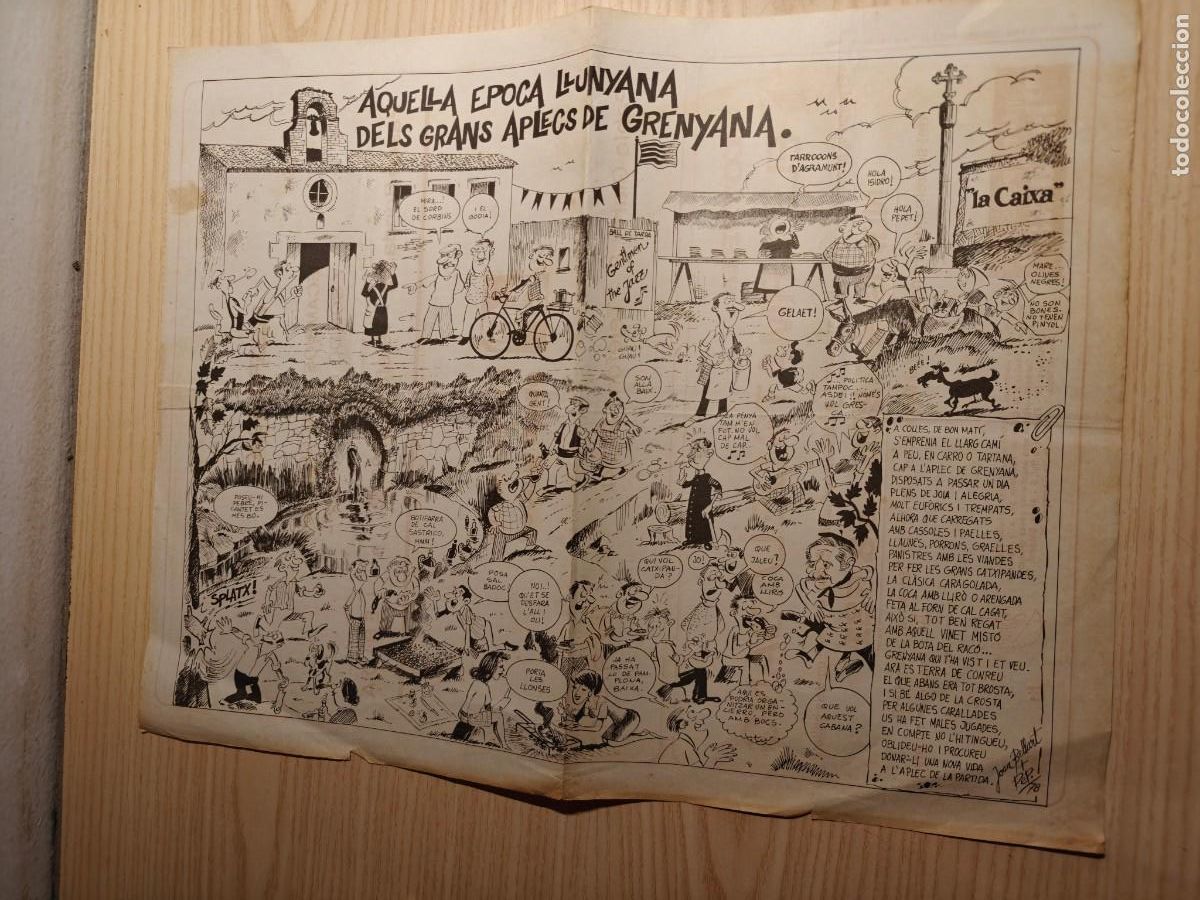 AQUELLA EPOCA LLUNYANA
DELS GRANS APLECS DE GRENYANA.
TARROOONS
D'AGRAMUNT!
HOLA
ISIDRO!
HOLA
PEPET!
"la Caixa"
MIRA...!
EL SORD
DE CORBINS
I EL
GODIA!
BALL DE TARDA
Gentlemen
of
the Jazz
MARE...
OLIVES
NEGRES!
NO SON
BONES.
NO TENEN
PINYOL
GELAET!
SON
ALLÀ
BAIX.
QUANTA
GENT
BEEE!
POLITICA
TAMPOC...
ASDEI!! NOMES
VOL GRES-
CA
LA PENYA
TAM M'EN
FOT. NO VOL
CAP MAL
DE CAP...
POSEU-HI
PEBRE, PI-
CANTET ES
MES BO.
BOTIFARRA
DE CAL
SASTRICO,
HMN!
SPLATX!
POSA
SAL
BADOC
NOI..!
QU'ET SE
DESFARA
L'ALL I
OLI!
QUI VOL
CATXIPAN-
DA?
JO!
QUE
JALEU?
COCA
AMB
LLIRIS
PORTA
LES
LLONSES
JA HA
PASSAT
LO DE PAM-
PLONA,
BAIXA.
AQUI ES
PODRIA ORGA-
NITZAR UN EN-
CIERRO, PERO
AMB BOCS.
QUE VOL
AQUEST
CABANA?
A COLLES, DE BON MATI,
S'EMPRENIA EL LLARG CAMÍ
A PEU, EN CARRO O TARTANA,
CAP A L'APLEC DE GRENYANA,
DISPOSATS A PASSAR UN DIA
PLENS DE JOIA I ALEGRIA,
MOLT EUFORICS I TREMPATS,
ALHORA QUE CARREGATS
AMB CASSOLES I PAELLES,
LLAUNES, PORRONS, GRAELLES,
PANISTRES AMB LES VIANDES
PER FER LES GRANS CATXIPANDES,
LA CLÀSICA CARAGOLADA,
LA COCA AMB LLIRÓ O ARENGADA
FETA AL FORN DE CAL CAGAT,
AIXÒ SI, TOT BEN REGAT
AMB AQUELL VINET MISTÓ
DE LA BOTA DEL RACÓ...
GRENYANA QUI T'HA VIST I ET VEU.
ARA ES TERRA DE CONREU
EL QUE ABANS ERA TOT BROSTA,
I SI BÉ ALGO DE LA CROSTA
PER ALGUNES CARALLADES
US HA FET MALES JUGADES,
EN COMPTE NO L'HI TINGUEU,
OBLIDEU-HO I PROCUREU
DONAR-LI UNA NOVA VIDA
A L'APLEC DE LA PARTIDA.
todocoleccion